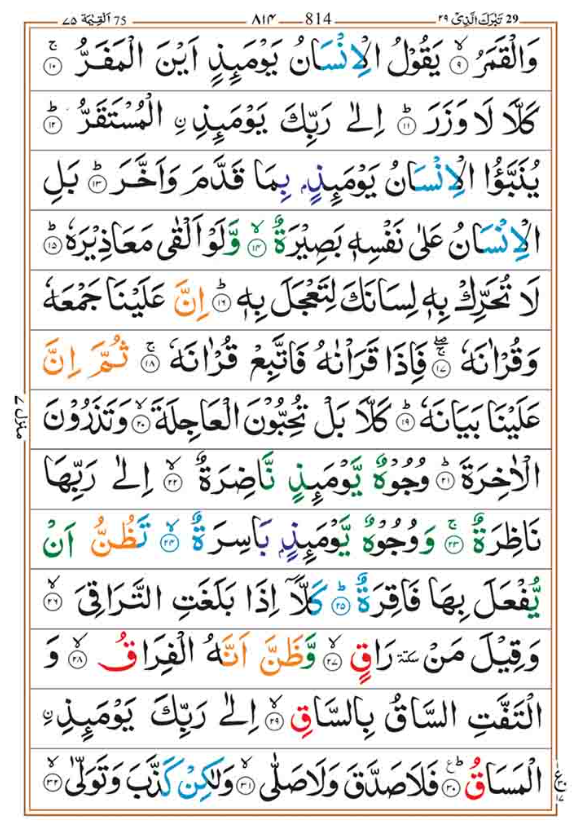 75 اَلْقِيٰمَة ٧٥ 814 ٨١٤ 29 تَبٰرَكَ الَّذِىْ ٢٩
وَالْقَمَرُ ۙ﴿٩﴾ يَقُوْلُ الْاِنْسَانُ يَوْمَئِذٍ اَيْنَ الْمَفَرُّ ۚ﴿١٠﴾
كَلَّا لَا وَزَرَ ؕ﴿١١﴾ اِلٰى رَبِّكَ يَوْمَئِذِ ۨ الْمُسْتَقَرُّ ؕ﴿١٢﴾
يُنَبَّؤُا الْاِنْسَانُ يَوْمَئِذٍۭ بِمَا قَدَّمَ وَاَخَّرَ ؕ﴿١٣﴾ بَلِ
الْاِنْسَانُ عَلٰى نَفْسِهٖ بَصِيْرَةٌ ۙ﴿١٤﴾ وَّلَوْ اَلْقٰى مَعَاذِيْرَهٗ ؕ﴿١٥﴾
لَا تُحَرِّكْ بِهٖ لِسَانَكَ لِتَعْجَلَ بِهٖ ؕ﴿١٦﴾ اِنَّ عَلَيْنَا جَمْعَهٗ
وَقُرْاٰنَهٗ ۚۖ﴿١٧﴾ فَاِذَا قَرَاْنٰهُ فَاتَّبِعْ قُرْاٰنَهٗ ۚ﴿١٨﴾ ثُمَّ اِنَّ
عَلَيْنَا بَيَانَهٗ ؕ﴿١٩﴾ كَلَّا بَلْ تُحِبُّوْنَ الْعَاجِلَةَ ۙ﴿٢٠﴾ وَتَذَرُوْنَ
الْاٰخِرَةَ ؕ﴿٢١﴾ وُجُوْهٌ يَّوْمَئِذٍ نَّاضِرَةٌ ۙ﴿٢٢﴾ اِلٰى رَبِّهَا
نَاظِرَةٌ ۚ﴿٢٣﴾ وَوُجُوْهٌ يَّوْمَئِذٍۭ بَاسِرَةٌ ۙ﴿٢٤﴾ تَظُنُّ اَنْ
يُّفْعَلَ بِهَا فَاقِرَةٌ ؕ﴿٢٥﴾ كَلَّاۤ اِذَا بَلَغَتِ التَّرَاقِىَ ۙ﴿٢٦﴾
وَقِيْلَ مَنْ سكتة رَاقٍ ۙ﴿٢٧﴾ وَّظَنَّ اَنَّهُ الْفِرَاقُ ۙ﴿٢٨﴾ وَ
الْتَفَّتِ السَّاقُ بِالسَّاقِ ۙ﴿٢٩﴾ اِلٰى رَبِّكَ يَوْمَئِذِ ۨ
الْمَسَاقُ ؕ﴿٣٠﴾ فَلَا صَدَّقَ وَلَا صَلّٰى ۙ﴿٣١﴾ وَلٰكِنْ كَذَّبَ وَتَوَلّٰى ۙ﴿٣٢﴾
منزل ٧